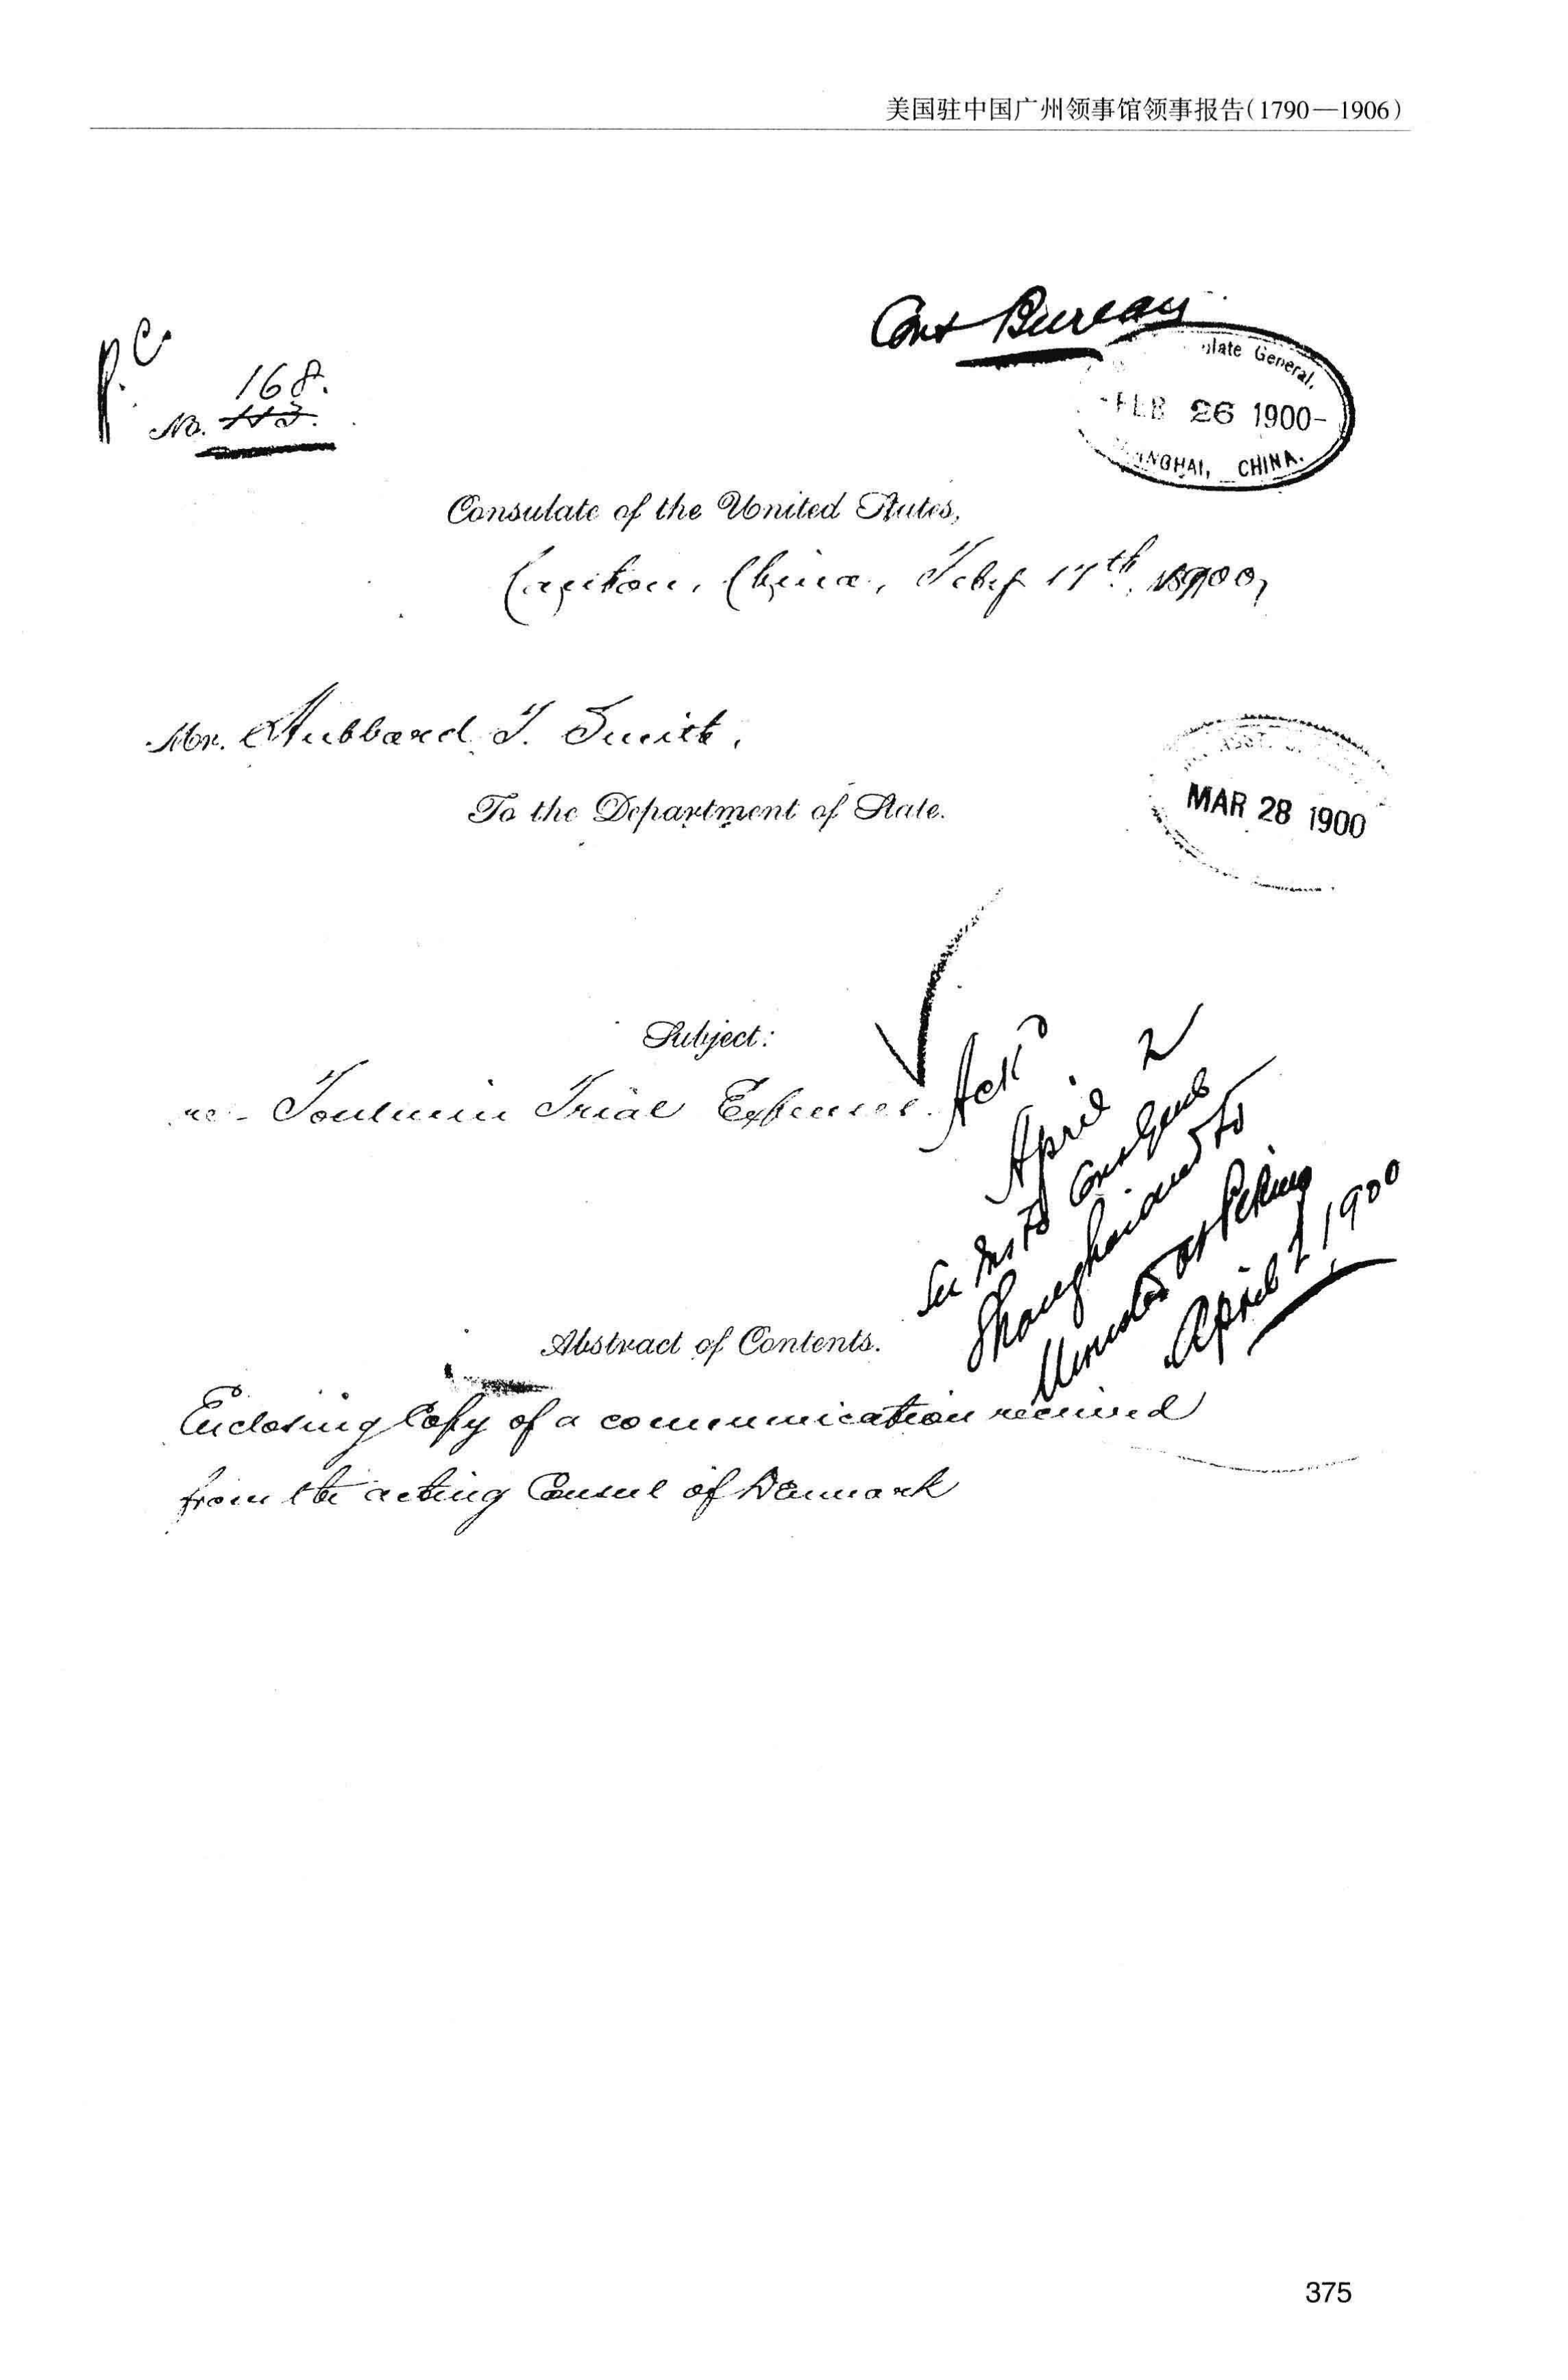 美国驻中国广州领事馆领事报告(1790—1906)
Cons Bureau
P.C.
168.
No. 113.
late General,
-FEB 26 1900-
ANGHAI, CHINA.
Consulate of the United States,
Canton, China, Feby 17th, 1900,
Mr. Hubbard T. Smith,
To the Department of State.
MAR 28 1900
Subject:
re- Toulmin Trial Expenses.
Ack'd
April 2
See Ins to Cons Genl
Shanghai and to
Minister at Peking
April 2, 1900
Abstract of Contents.
Enclosing Copy of a communication received
from the acting Consul of Denmark
375